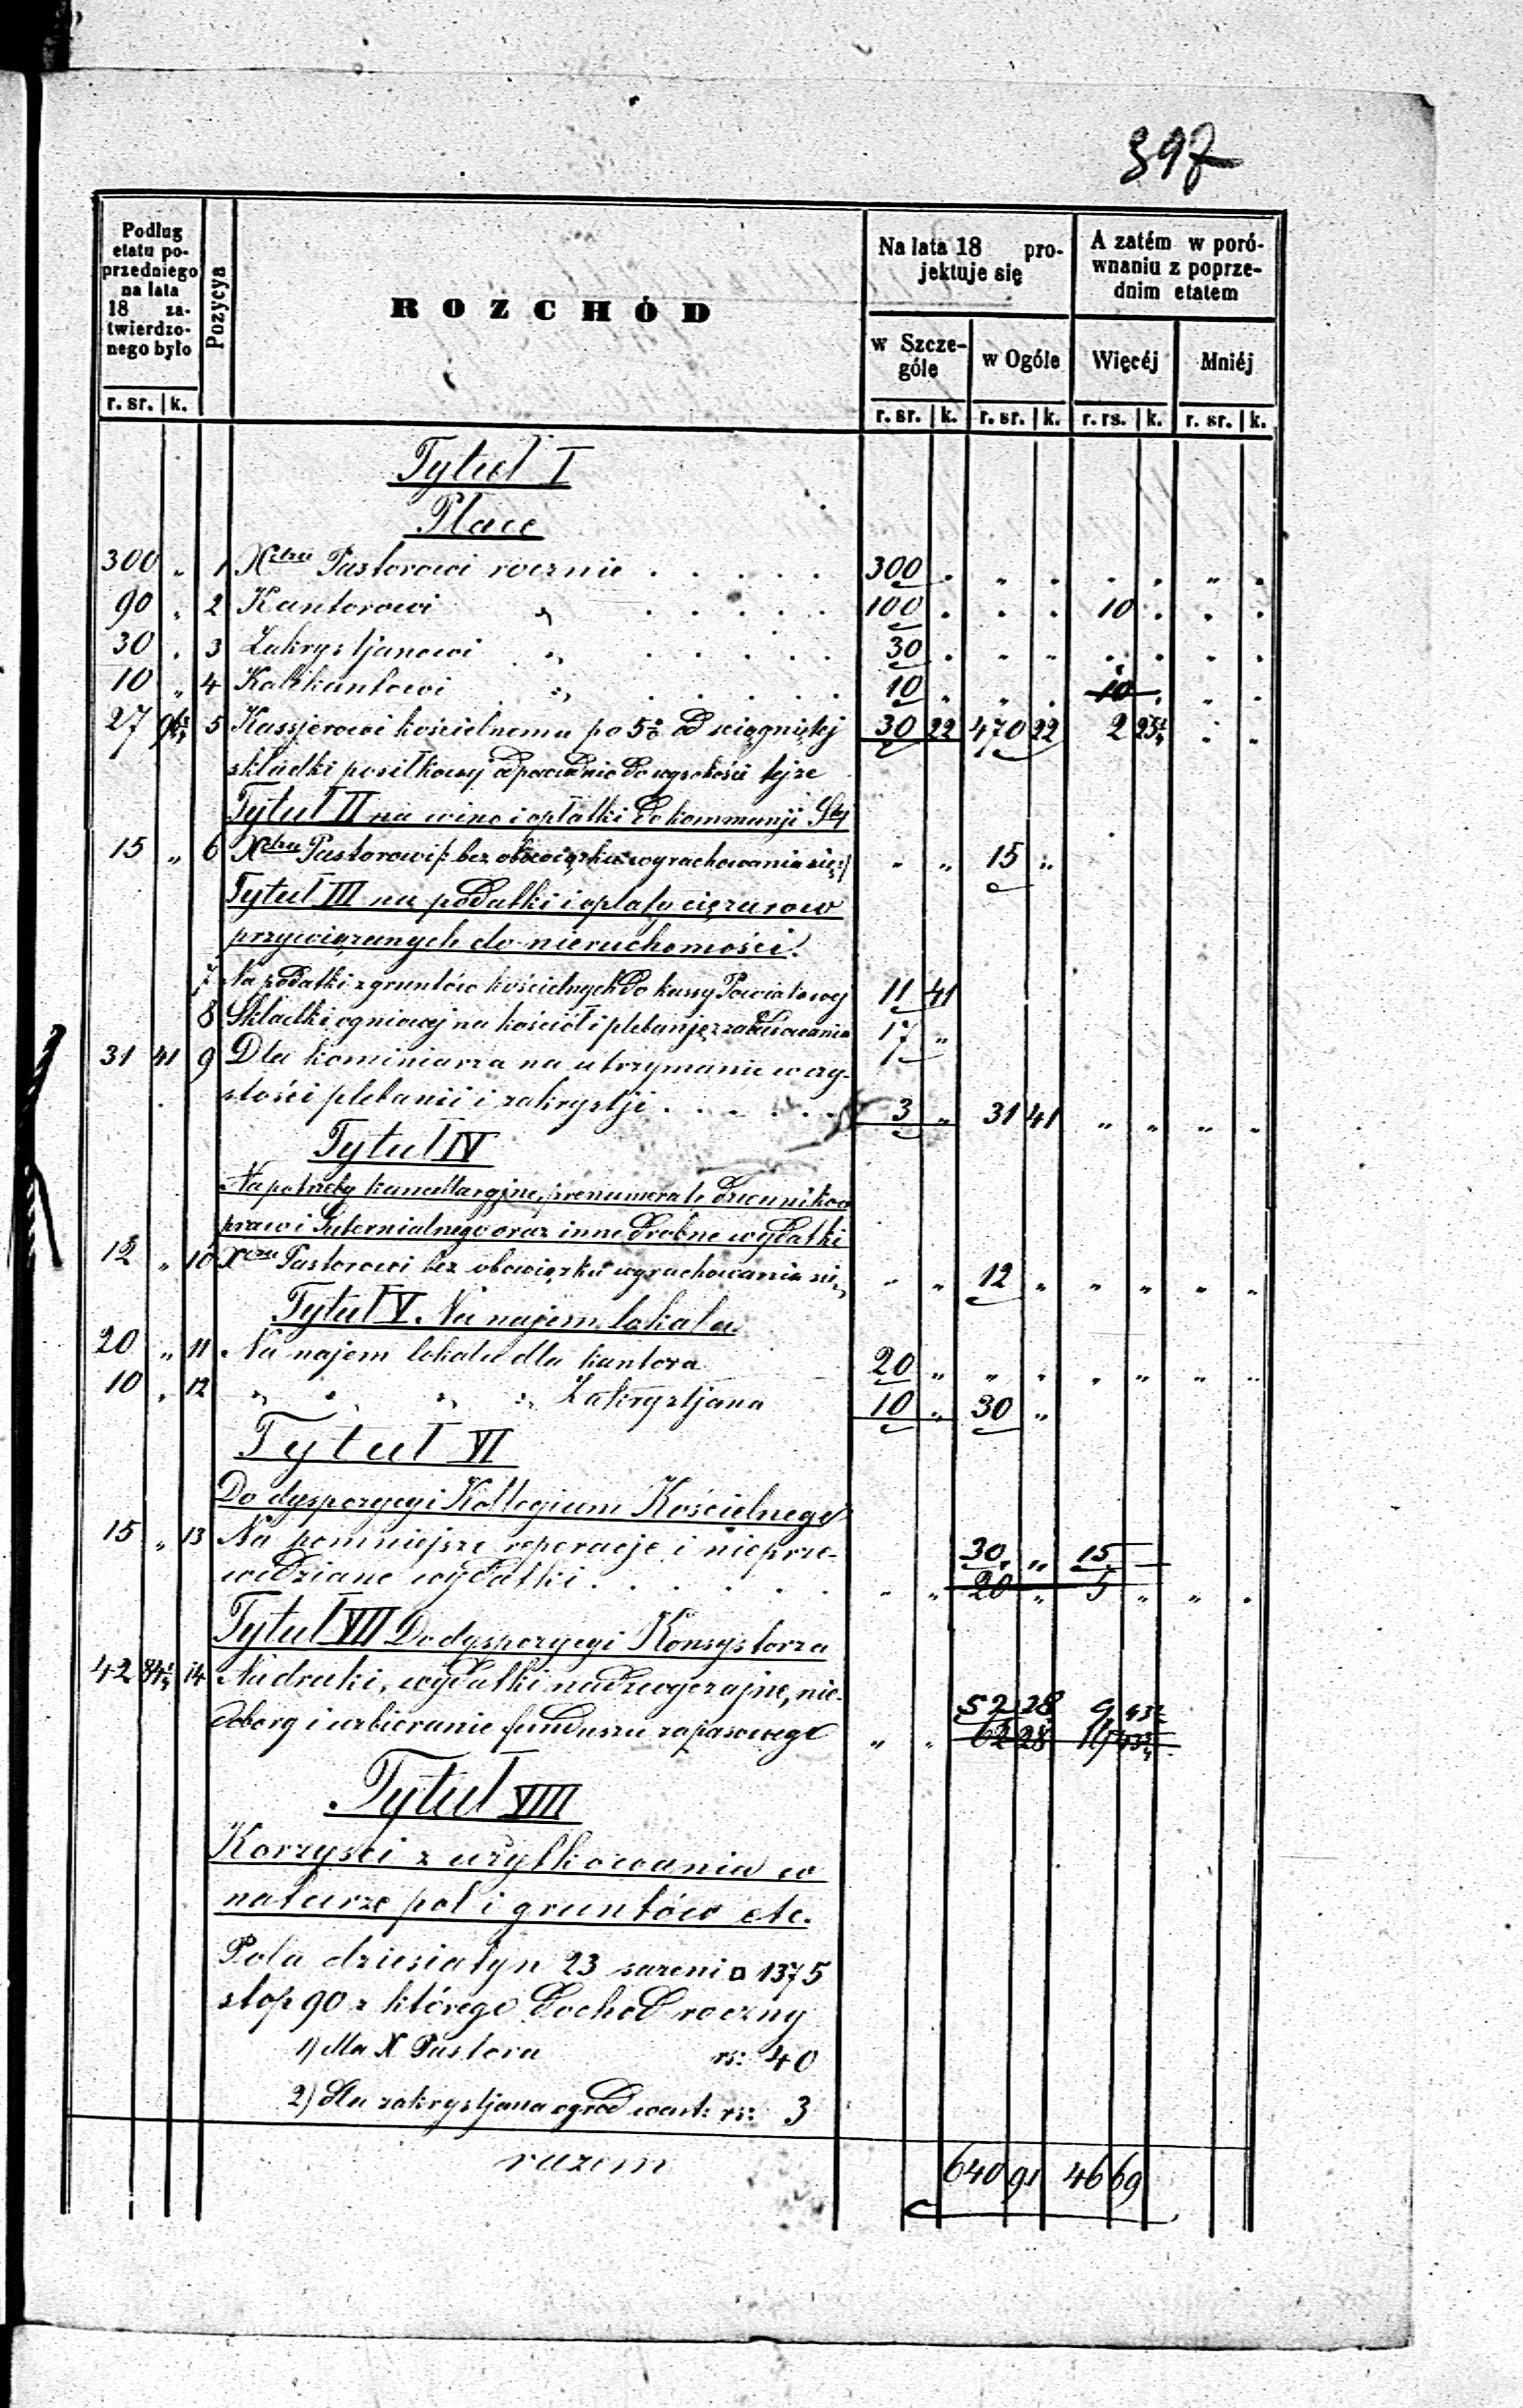 397
Podlug etatu poprzedniego na lata 18 za- twierdzo- nego bylo
Pozycya
ROZCHÓD
Na lata 18 pro- jektuje się
A zatém w poró- wnaniu z poprze- dnim etatem
w Szcze- góle
w Ogóle
Więcéj
Mniéj
r. sr. k. r. sr. k. r. sr. k. r. rs. k. r. sr. k.
Tytuł I
Płace
300 „ 1 Xdzu Pastorowi rocznie . . . . . 300 „ „ „ „ „ „ „
90 „ 2 Kantorowi „ . . . . . 100 „ „ „ 10 „ „ „
30 „ 3 Zakrystjanowi „ . . . . . 30 „ „ „ „ „ „ „
10 „ 4 Kalikantowi „ . . . . . 10 „ „ „ 10 „ „ „
27 5 Kassjerowi kościelnemu po 5% od sciągniętej 30 22 470 22 2 „ „
składki posiłkowej odpowiednio do wysokości tejże
Tytuł II na wino i opłatki do kommunji Stej
15 „ 6 Xdzu Pastorowi /: bez obowiązku wyrachowania się :/ „ „ 15 „
Tytuł III na podatki i opłaty ciężarow
przywiązanych do nieruchomości.
7 Na podatki z gruntów kościelnych do kassy Powiatowej 11 41
8 Składki ogniowej na kościół i plebanję z zabudowania 17 „
31 41 9 Dla kominiarza na utrzymanie w czy-
stości plebanii i zakrystji . . . . . . 3 „ 31 41 „ „ „ „
Tytuł IV
Na potrzeby kancellaryjne, prenumeratę dzienników
praw i Gubernialnego oraz inne drobne wydatki
12 „ 10 Xdzu Pastorowi bez obowiązku wyrachowania się „ „ 12 „ „ „ „ „
Tytuł V. Na najem lokalu
20 „ 11 Na najem lokalu dla kantora 20 „ „ „ „ „ „ „
10 „ 12 „ „ „ „ Zakrystjana 10 „ 30 „
Tytuł VI
Do dyspozycyi Kollegium Kościelnego
15 „ 13 Na pomniejsze reperacje i nieprze- 30 „ 15 –
widziane wydatki . . . . . . „ „ 20 „ 5 „ „ „
Tytuł VII Do dyspozycyi Konsystorza
42 84½ 14 Na druki, wydatki nadzwyczajne, nie- 52 28 9
dobory i uzbieranie funduszu zapasowego „ „ 62 28
Tytuł VIII
Korzyści z użytkowania w
naturze pól i gruntów etc.
Pola dziesiatyn 23 sażeni □ 1375
stop 90 z którego dochod roczny
1) dla X Pastora rs: 40
2) dla zakrystjana ogród wart: rs: 3
razem 640 91 46 69